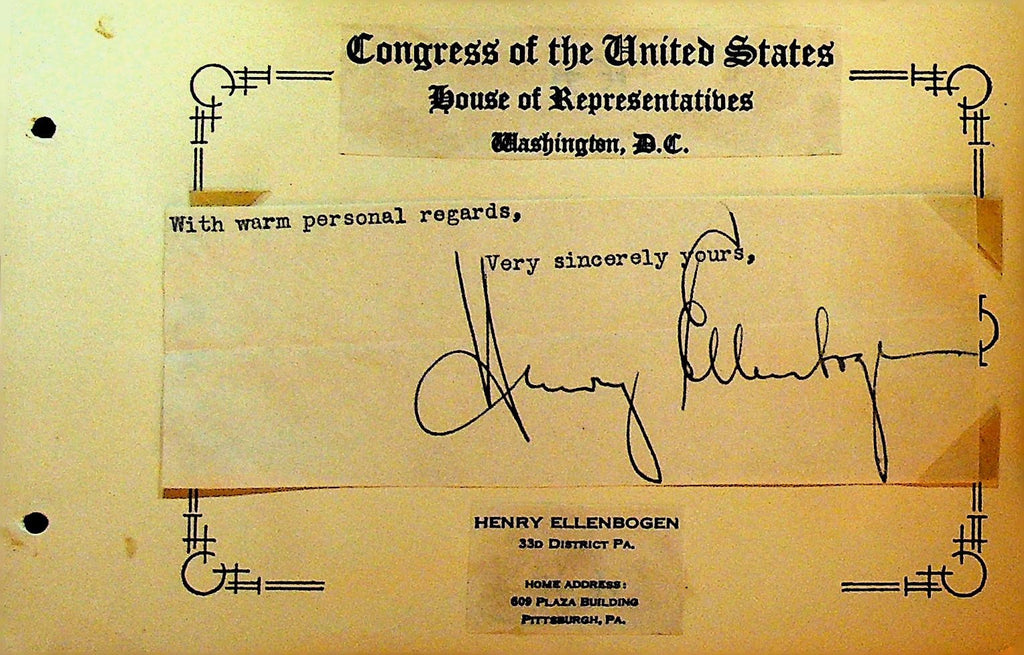 Congress of the United States
House of Representatives
Washington, D.C.
With warm personal regards,
Very sincerely yours,
Henry Ellenbogen
HENRY ELLENBOGEN
33D DISTRICT PA.
HOME ADDRESS:
609 PLAZA BUILDING
PITTSBURGH, PA.